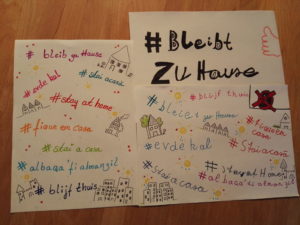 # bleib zu House
# evde kal
# stai a casa
# stay at home
# fique em casa
# stai a casa
# albaqa' fi almanzil
# blijf thuis
# Bleibt
Zu House
# blijf thuis
# bleibt zu House
# evde kal
# Stai a casa
# Stay at Home
# stai a casa
# albaqa' fi almanzil